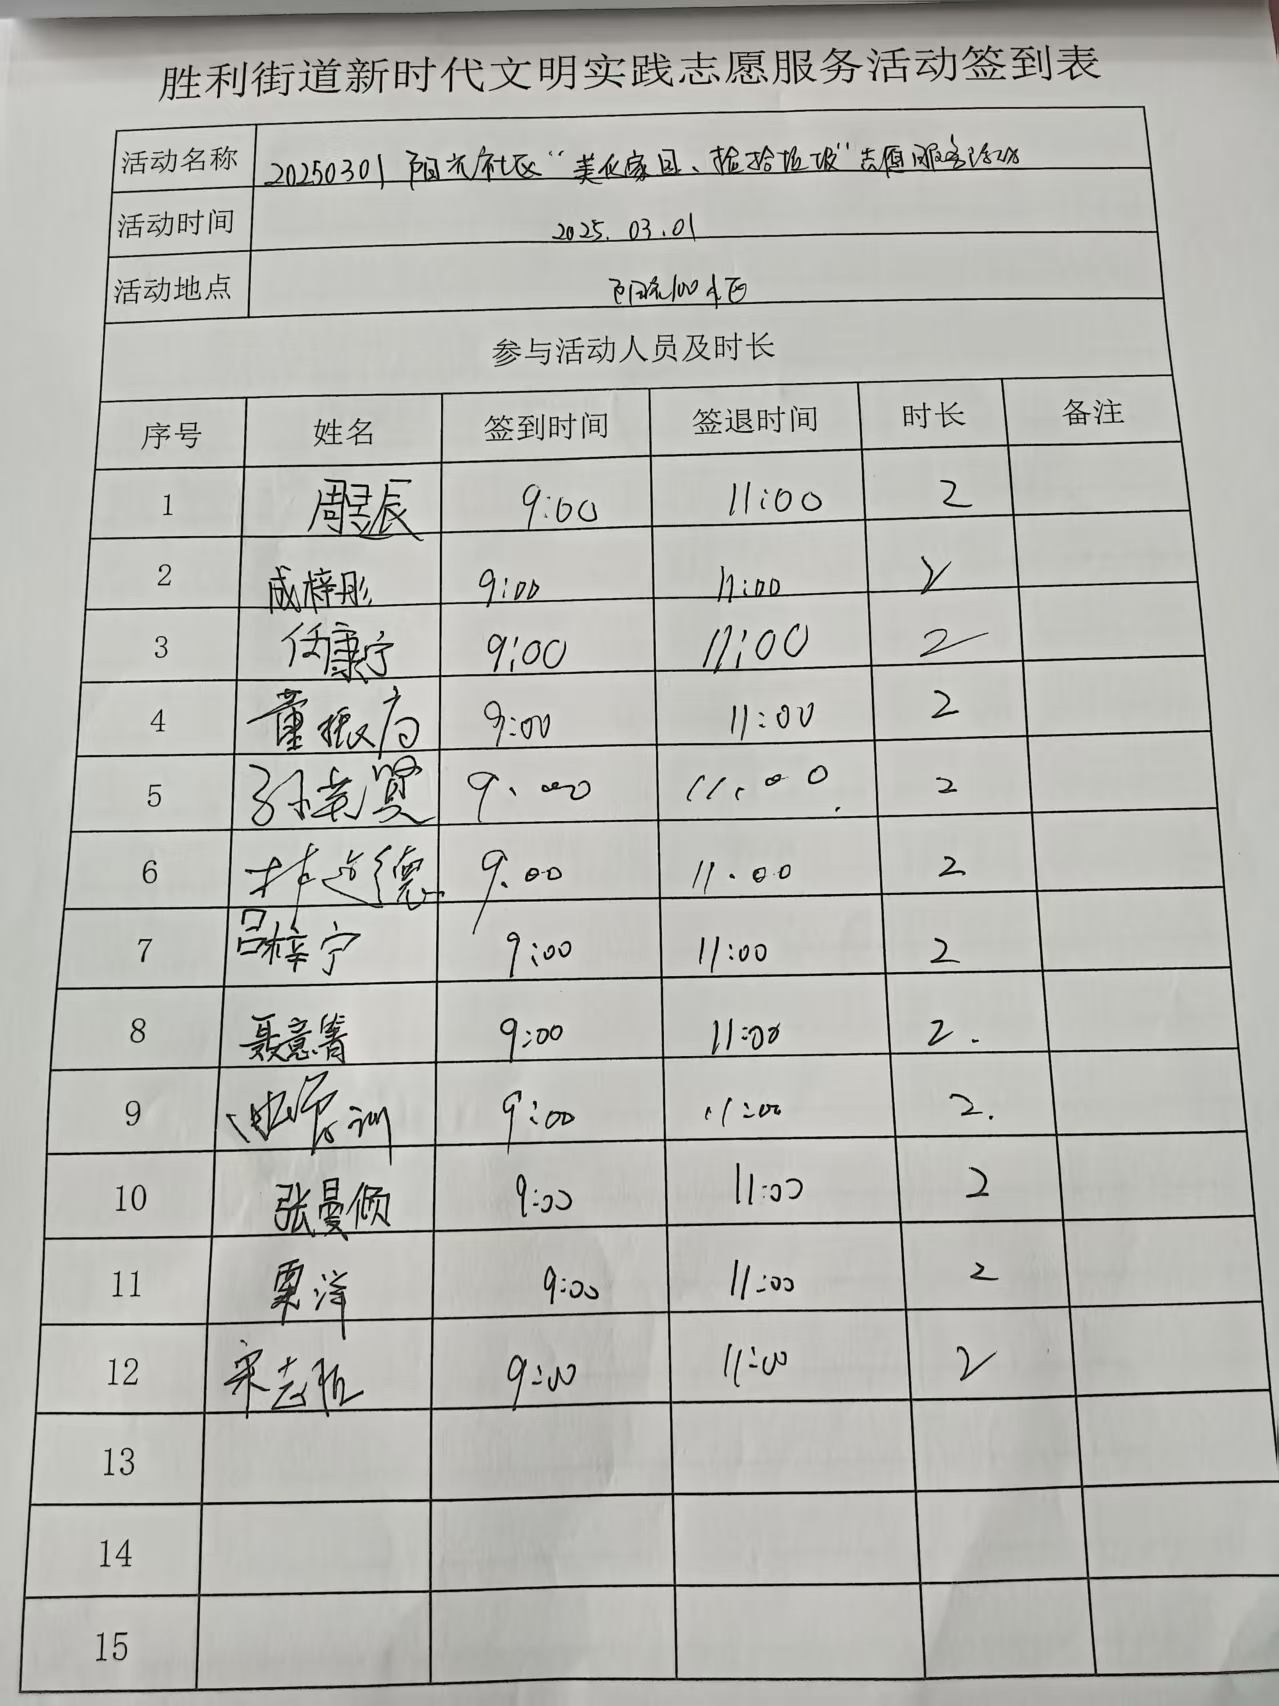 胜利街道新时代文明实践志愿服务活动签到表
活动名称 20250301 阳光社区“美化家园、捡拾垃圾”志愿服务活动
活动时间 2025.03.01
活动地点 阳光100小区
参与活动人员及时长
序号 姓名 签到时间 签退时间 时长 备注
1 周昱辰 9:00 11:00 2
2 成梓彤 9:00 11:00 2
3 任康宁 9:00 11:00 2
4 董振 9:00 11:00 2
5 9:00 11:00 2
6 林 德 9:00 11:00 2
7 吕梓宁 9:00 11:00 2
8 聂意箐 9:00 11:00 2.
9 9:00 11:00 2.
10 张曼倾 9:00 11:00 2
11 栗洋 9:00 11:00 2
12 宋志 9:00 11:00 2
13
14
15